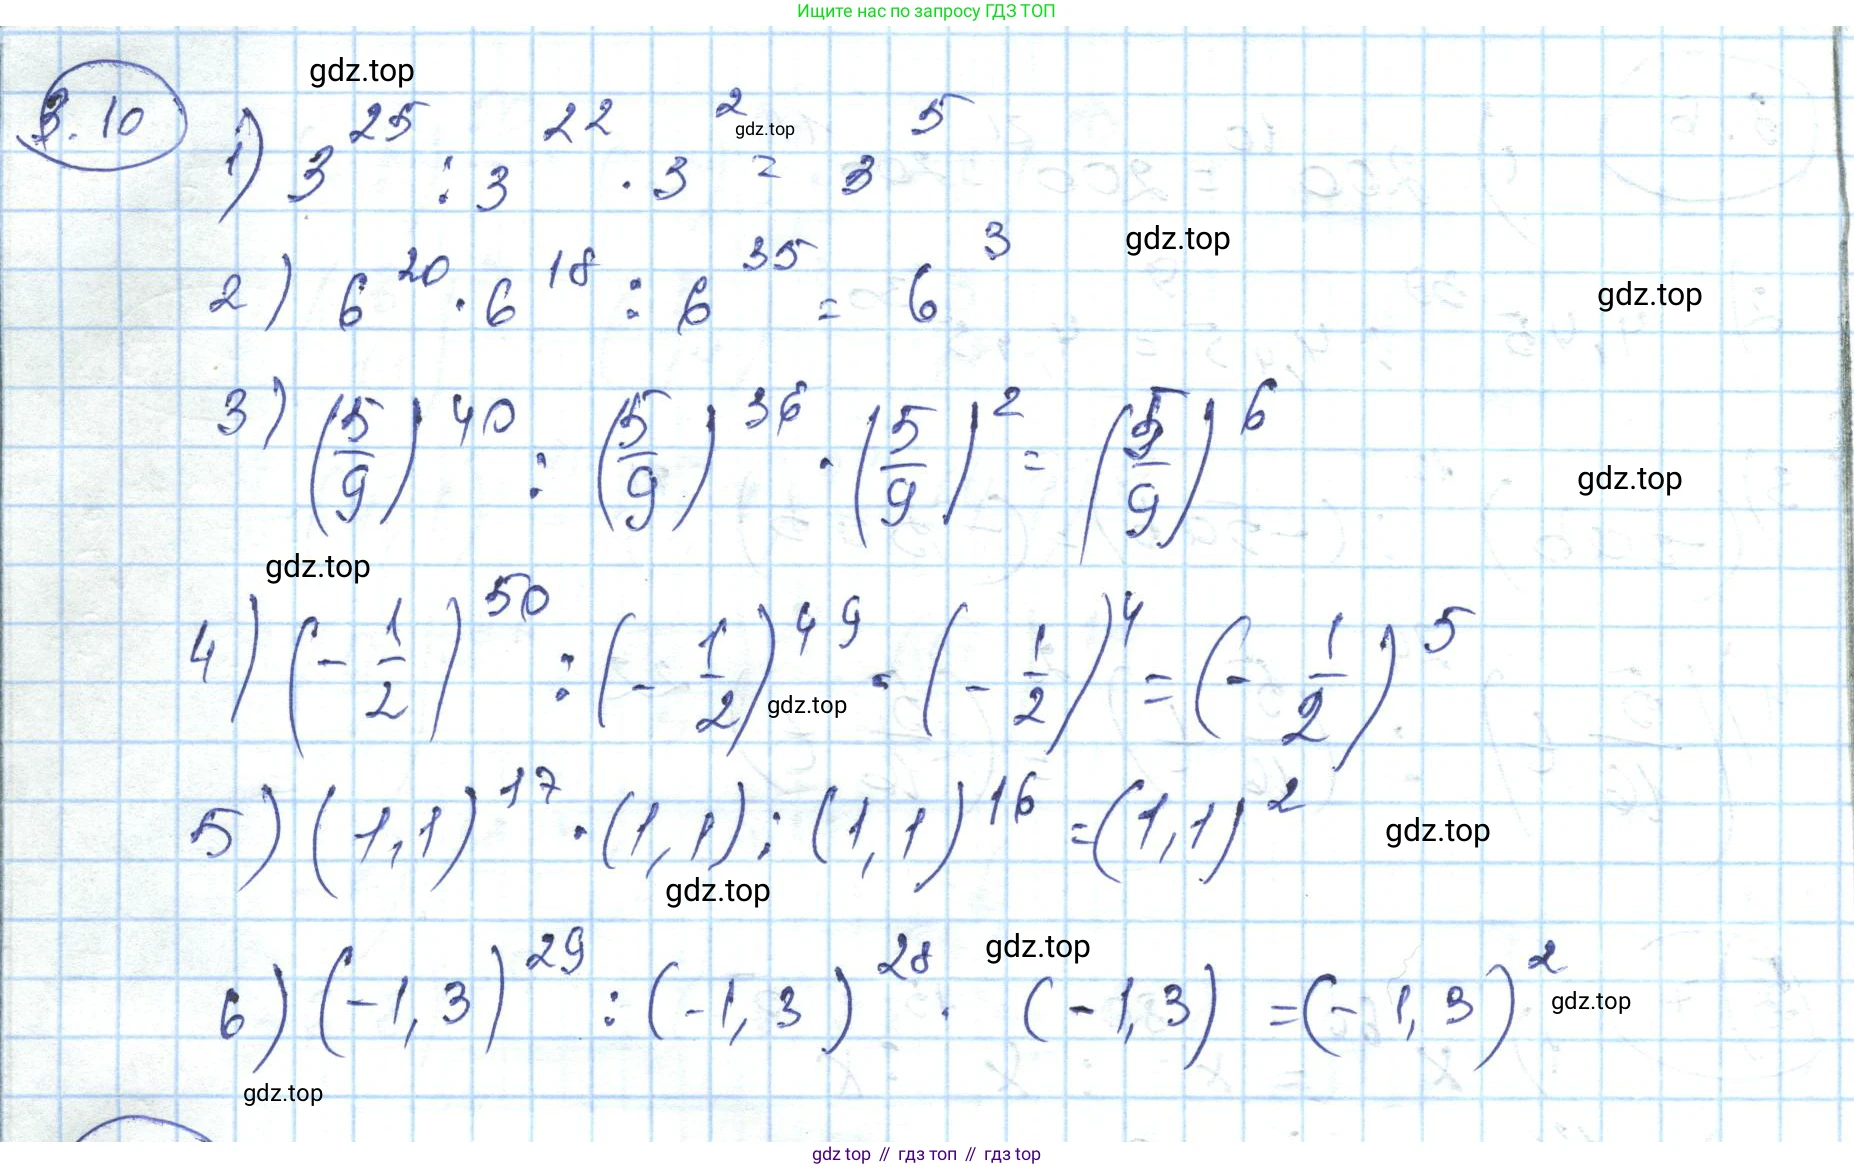 Ищите нас по запросу ГДЗ ТОП
gdz.top
3.10
1) 3^25 : 3^22 · 3^2 = 3^5
gdz.top
gdz.top
2) 6^20 · 6^18 : 6^35 = 6^3
gdz.top
3) (5/9)^40 : (5/9)^36 · (5/9)^2 = (5/9)^6
gdz.top
gdz.top
4) (-1/2)^50 : (-1/2)^49 · (-1/2)^4 = (-1/2)^5
gdz.top
5) (1,1)^17 · (1,1) : (1,1)^16 = (1,1)^2
gdz.top
gdz.top
gdz.top
6) (-1,3)^29 : (-1,3)^28 · (-1,3) = (-1,3)^2
gdz.top
gdz.top
gdz top // гдз топ // gdz top